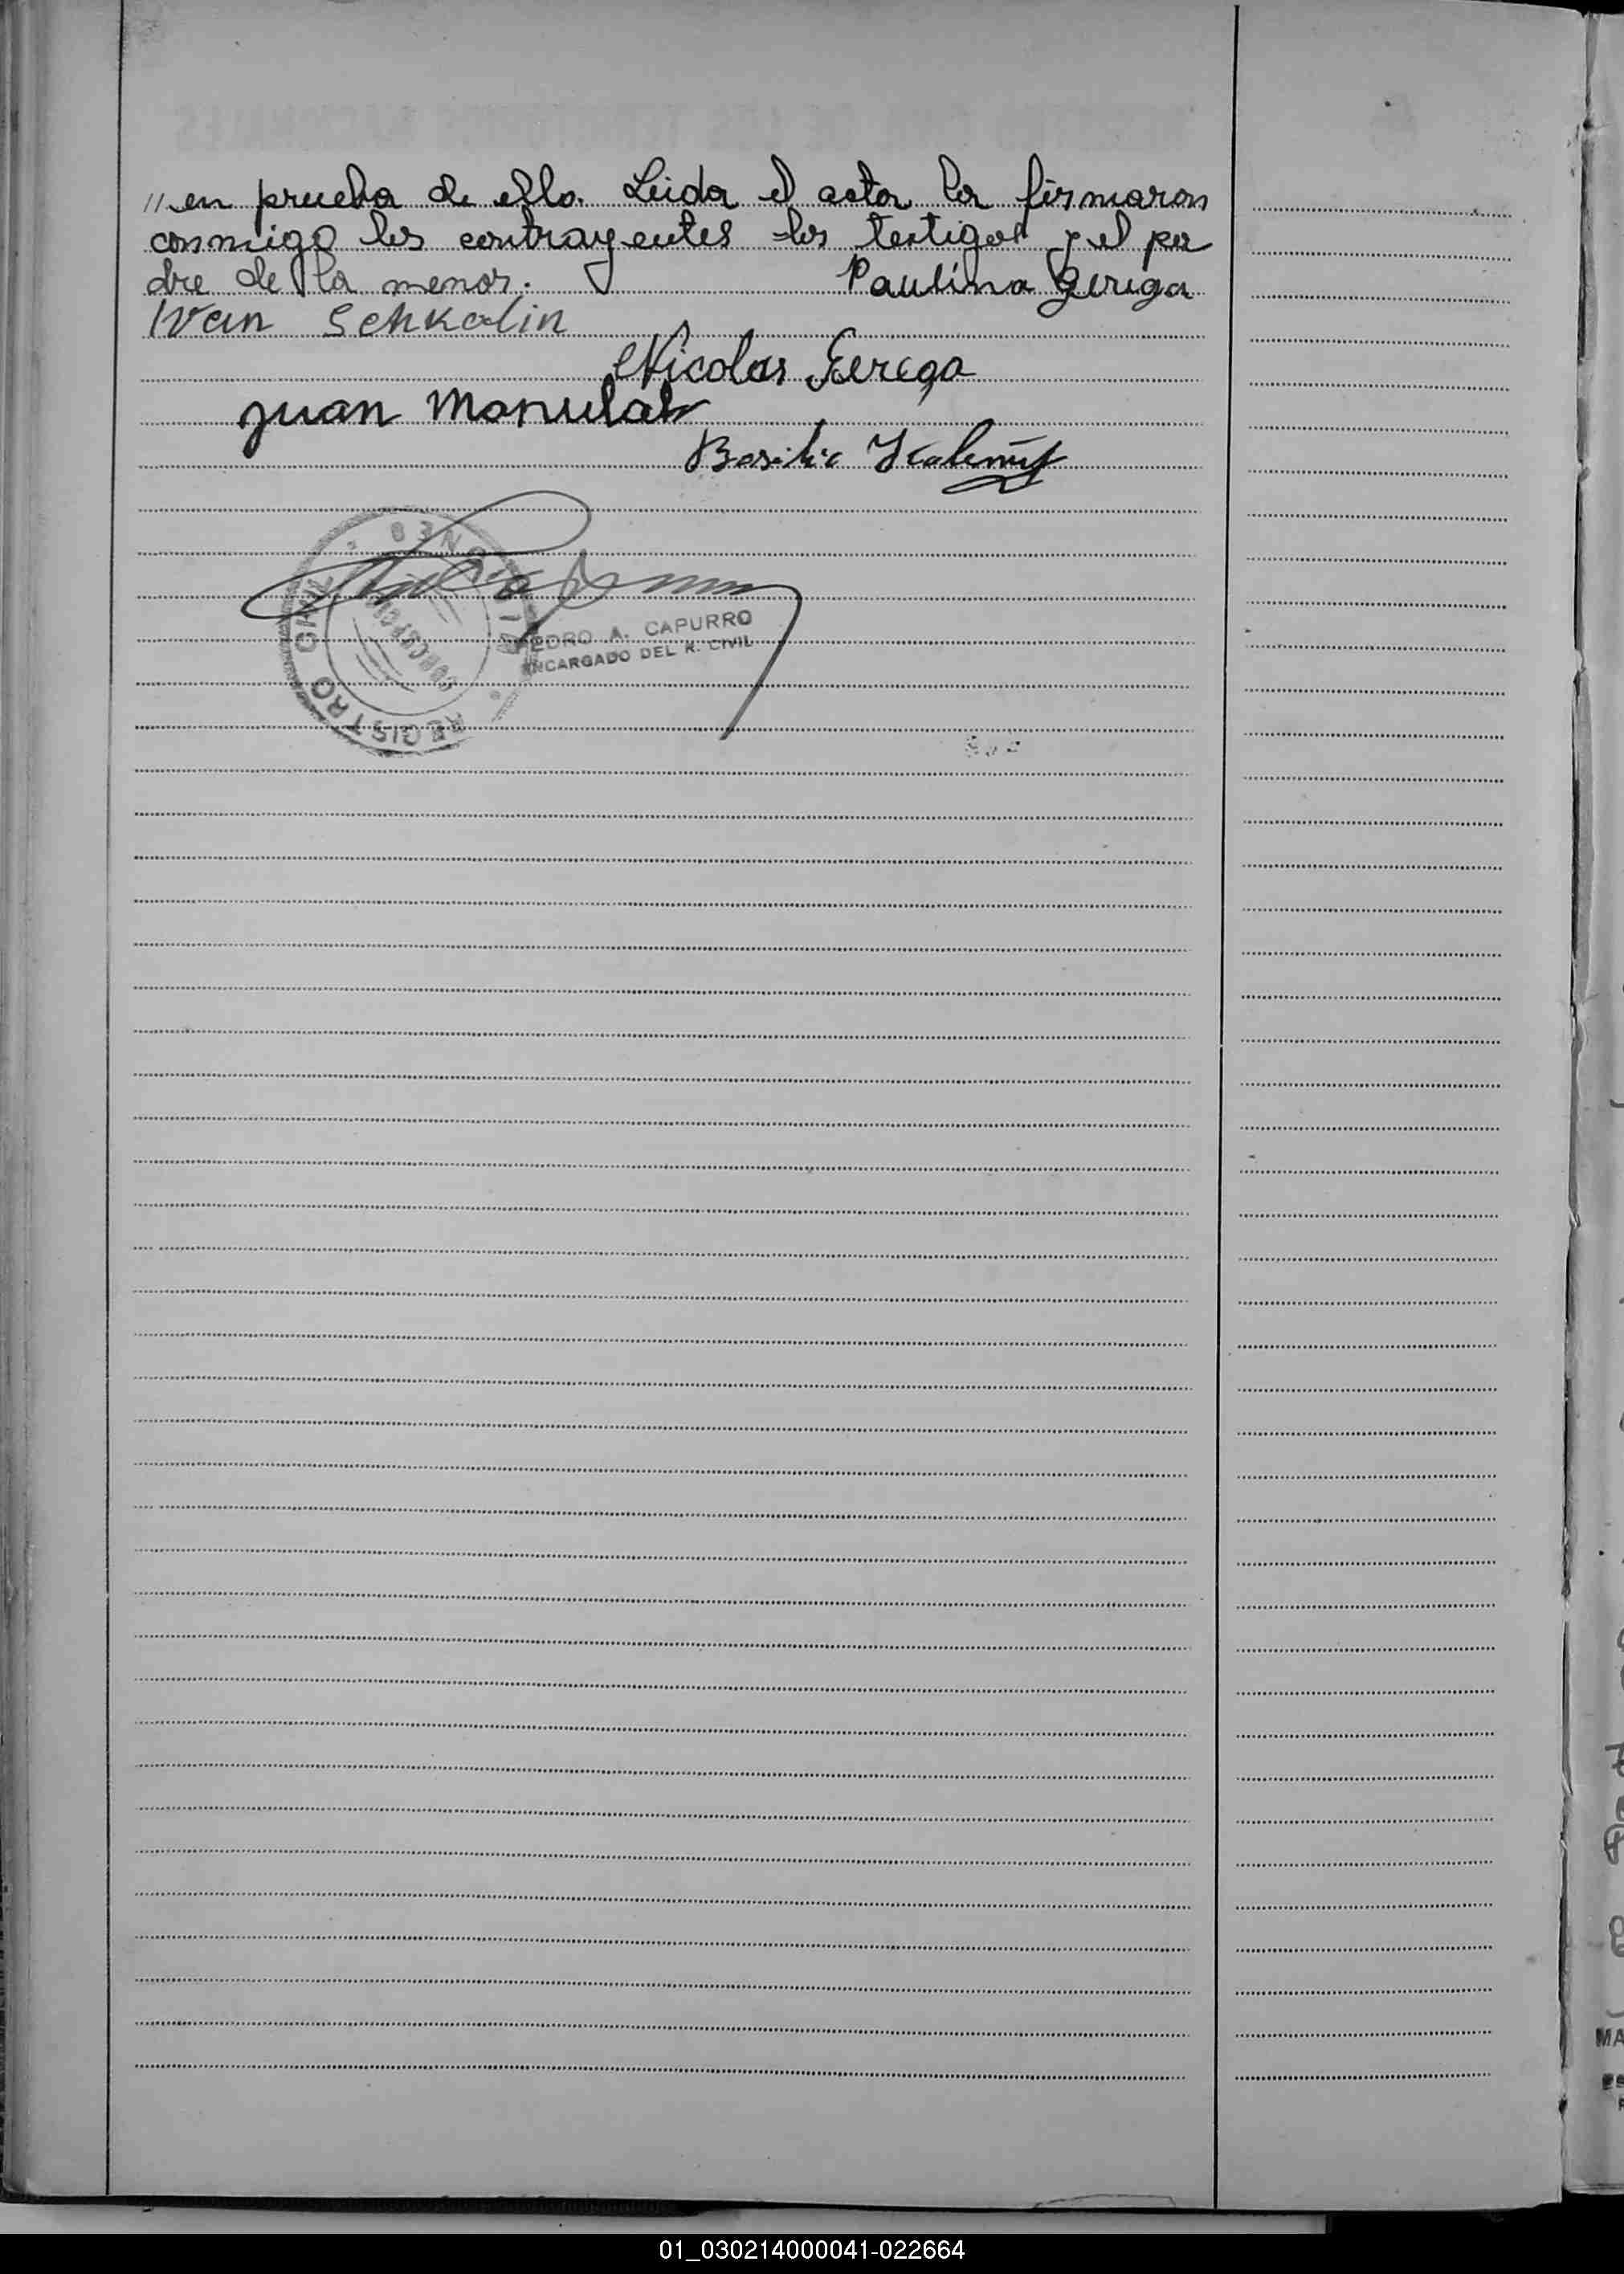 // en prueba de ello. Leida el acta la firmaron
conmigo los contrayentes los testigos y el pa
dre de la menor. Paulina Gerega
Ivan Schkalin
Nicolas Gerega
Juan Manulak
Basilio
REGISTRO CIVIL MISIONES
PEDRO A. CAPURRO
ENCARGADO DEL R. CIVIL
MA
01_030214000041-022664